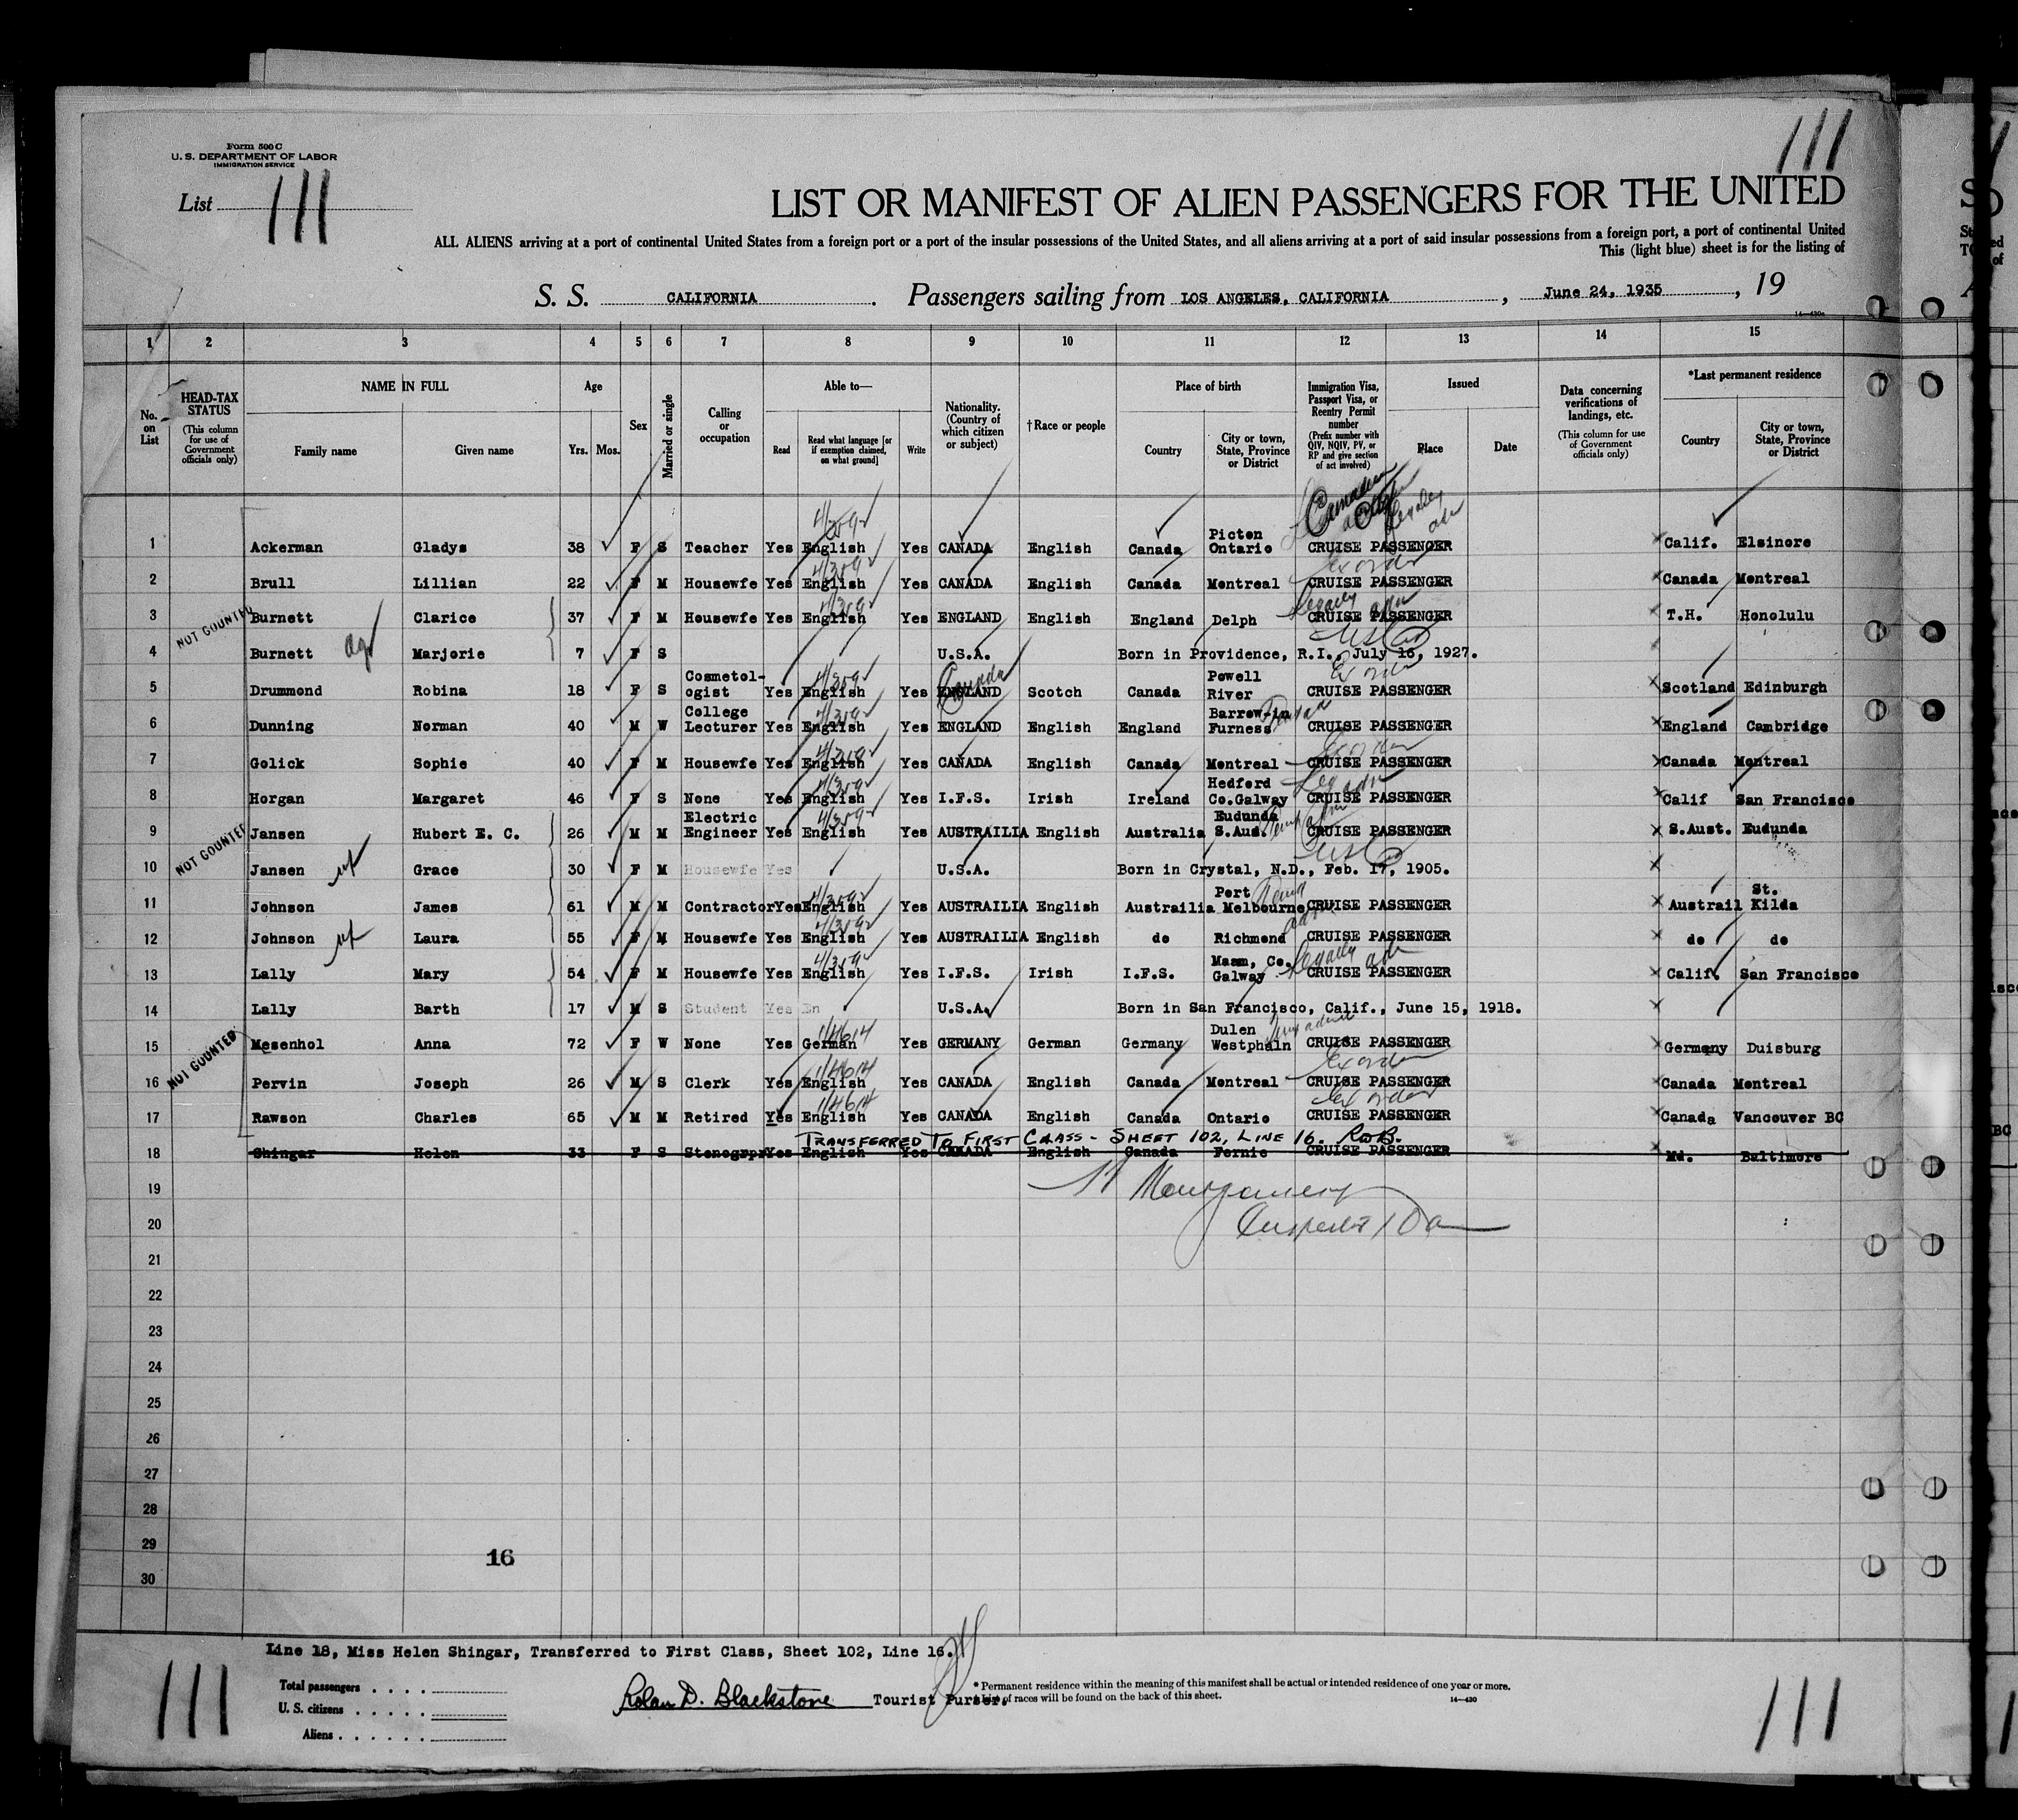 Form 500 C
U. S. DEPARTMENT OF LABOR
IMMIGRATION SERVICE
111
List 111
LIST OR MANIFEST OF ALIEN PASSENGERS FOR THE UNITED
ALL ALIENS arriving at a port of continental United States from a foreign port or a port of the insular possessions of the United States, and all aliens arriving at a port of said insular possessions from a foreign port, a port of continental United
This (light blue) sheet is for the listing of
S. S. CALIFORNIA . Passengers sailing from LOS ANGELES, CALIFORNIA , June 24, 1935 , 19
1 2 3 4 5 6 7 8 9 10 11 12 13 14 15
No. on List
HEAD-TAX STATUS (This column for use of Government officials only)
NAME IN FULL Family name Given name
Age Yrs. Mos.
Sex
Married or single
Calling or occupation
Able to— Read Read what language [or if exemption claimed, on what ground] Write
Nationality. (Country of which citizen or subject)
†Race or people
Place of birth Country City or town, State, Province or District
Immigration Visa, Passport Visa, or Reentry Permit number (Prefix number with QIV, NQIV, PV, or RP and give section of act involved)
Issued Place Date
Data concerning verifications of landings, etc. (This column for use of Government officials only)
*Last permanent residence Country City or town, State, Province or District
1 Ackerman Gladys 38 F S Teacher Yes English Yes CANADA English Canada Picton Ontario CRUISE PASSENGER Calif. Elsinore
2 Brull Lillian 22 F M Housewfe Yes English Yes CANADA English Canada Montreal CRUISE PASSENGER Canada Montreal
3 Burnett Clarice 37 F M Housewfe Yes English Yes ENGLAND English England Delph CRUISE PASSENGER T.H. Honolulu
NOT COUNTED
4 Burnett Marjorie 7 F S U.S.A. Born in Providence, R.I., July 16, 1927.
5 Drummond Robina 18 F S Cosmetol-ogist Yes English Yes ENGLAND Canada Scotch Canada Powell River CRUISE PASSENGER Scotland Edinburgh
6 Dunning Norman 40 M W College Lecturer Yes English Yes ENGLAND English England Barrow-in Furness CRUISE PASSENGER England Cambridge
7 Golick Sophie 40 F M Housewfe Yes English Yes CANADA English Canada Montreal CRUISE PASSENGER Canada Montreal
8 Horgan Margaret 46 F S None Yes English Yes I.F.S. Irish Ireland Hedford Co.Galway CRUISE PASSENGER Calif San Francisco
9 Jansen Hubert E. C. 26 M M Electric Engineer Yes English Yes AUSTRAILIA English Australia Eudunda S.Aus. CRUISE PASSENGER S.Aust. Eudunda
NOT COUNTED
10 Jansen Grace 30 F M Housewfe Yes U.S.A. Born in Crystal, N.D., Feb. 17, 1905.
11 Johnson James 61 M M Contractor Yes English Yes AUSTRAILIA English Austrailia Port Melbourne CRUISE PASSENGER Austrail St. Kilda
12 Johnson Laura 55 F M Housewfe Yes English Yes AUSTRAILIA English do Richmond CRUISE PASSENGER do do
13 Lally Mary 54 F M Housewfe Yes English Yes I.F.S. Irish I.F.S. Maam, Co. Galway CRUISE PASSENGER Calif. San Francisco
14 Lally Barth 17 M S Student Yes En U.S.A. Born in San Francisco, Calif., June 15, 1918.
NOT COUNTED
15 Mesenhol Anna 72 F W None Yes German Yes GERMANY German Germany Dulen Westphaln CRUISE PASSENGER Germany Duisburg
16 Pervin Joseph 26 M S Clerk Yes English Yes CANADA English Canada Montreal CRUISE PASSENGER Canada Montreal
17 Rawson Charles 65 M M Retired Yes English Yes CANADA English Canada Ontario CRUISE PASSENGER Canada Vancouver BC
TRANSFERRED TO FIRST CLASS - SHEET 102, LINE 16. RDB.
18 Shingar Helen 33 F S Stenogrpr Yes English Yes CANADA English Canada Fernie CRUISE PASSENGER Md. Baltimore
19 Montgomery
20 Inspector
21
22
23
24
25
26
27
28
29
16
30
Line 18, Miss Helen Shingar, Transferred to First Class, Sheet 102, Line 16.
111
Total passengers
U. S. citizens
Aliens
Rolan D. Blackstone Tourist Purser.
* Permanent residence within the meaning of this manifest shall be actual or intended residence of one year or more.
† List of races will be found on the back of this sheet.
14—430
111